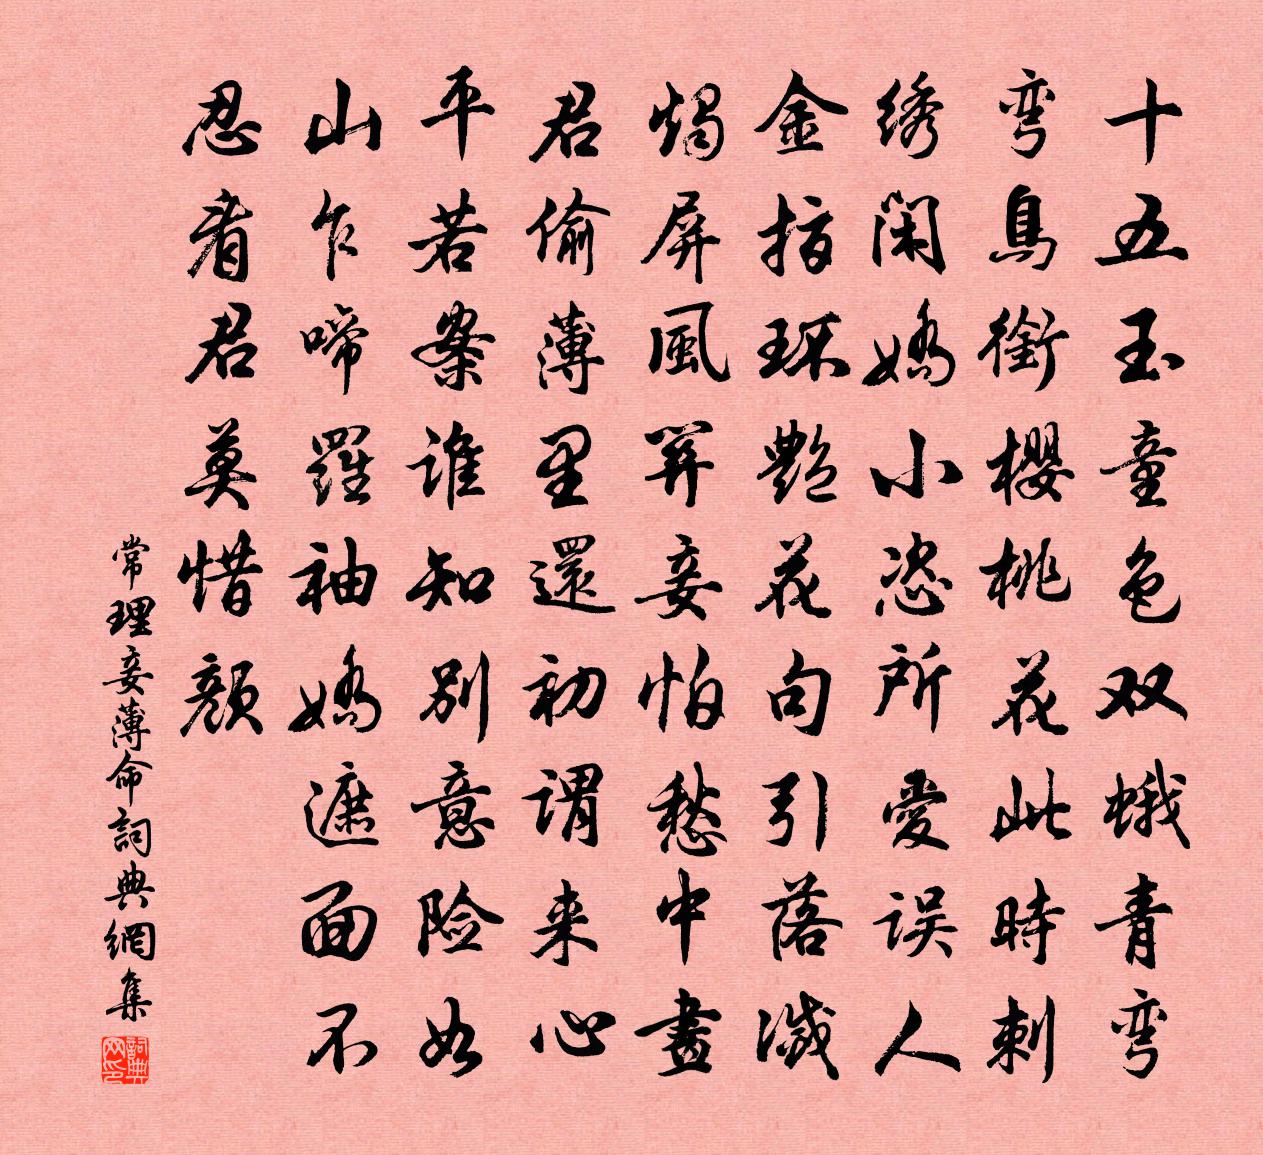 十五玉童色双蛾青弯
弯鳥銜櫻桃花此時刺
绣闲嬌小恣所愛误人
金指环艷花句引落滅
燭屏風關妾怕愁中畫
君偷薄里還初谓来心
平若案谁知别意险如
山乍啼羅袖嬌遮面不
忍看君莫惜顔
常理妾薄命詞典網集
詞典网印